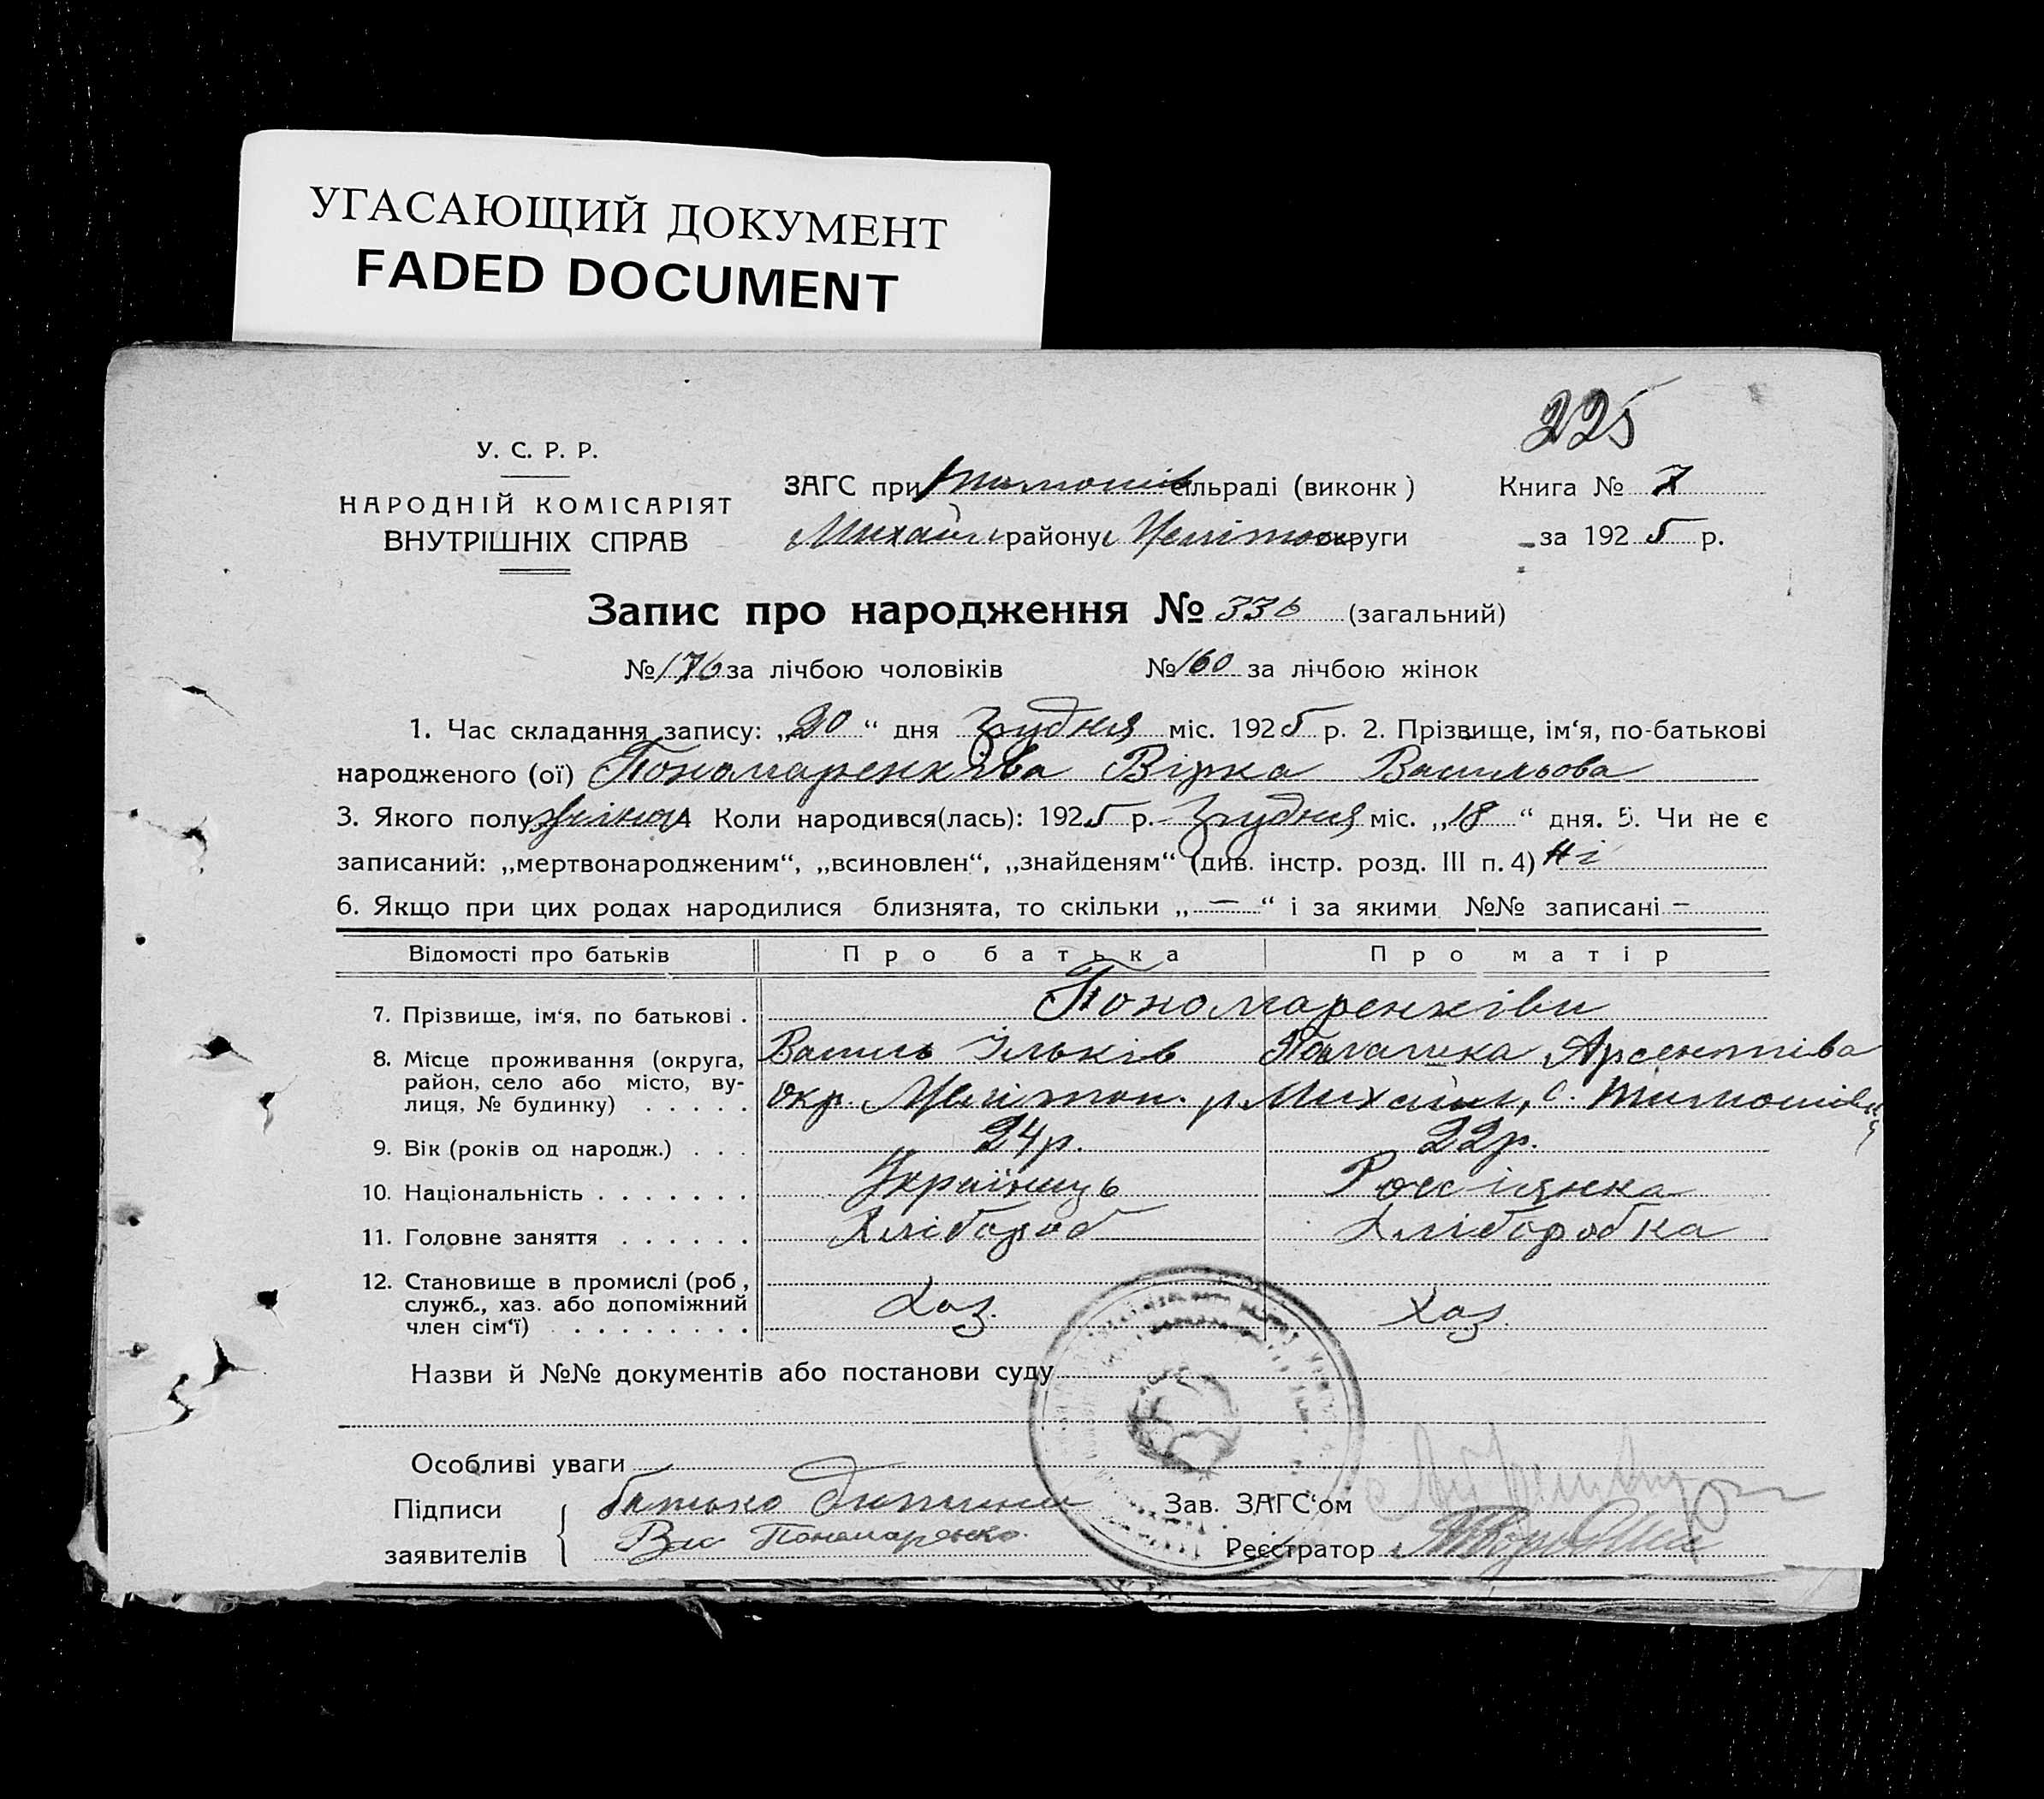 УГАСАЮЩИЙ ДОКУМЕНТ
FADED DOCUMENT
225
У. С. Р. Р.
НАРОДНІЙ КОМІСАРІЯТ
ВНУТРІШНІХ СПРАВ
ЗАГС при Тимошів сільраді (виконк )
Михайл району Мелітоп округи
Книга № 7
за 1925 р.
Запис про народження № 336 (загальний)
№ 176 за лічбою чоловіків № 160 за лічбою жінок
1. Час складання запису: „20“ дня Грудня міс. 1925 р. 2. Прізвище, ім‘я, по-батькові
народженого (ої) Пономаренківа Вірка Васильова
3. Якого полу жіноч 4 Коли народився(лась): 1925 р. Грудня міс. „18“ дня. 5. Чи не є
записаний: „мертвонародженим“, „всиновлен“, „знайденям“ (див. інстр. розд. III п. 4) Ні
6. Якщо при цих родах народилися близнята, то скільки „—“ і за якими №№ записані –
Відомості про батьків Про батька Про матір
7. Прізвище, ім‘я, по батькові . Пономаренківи
Василь Ільків Палажка Арсентіева
8. Місце проживання (округа,
район, село або місто, ву-
лиця, № будинку) . . . . . Окр. Мелітоп. р. Михайл, с. Тимошівц
9. Вік (років од народж.) . . . 24р. 22р.
10. Національність . . . . . . . Українець Россіянка
11. Головне заняття . . . . . . Хлібороб Хліборобка
12. Становище в промислі (роб ,
служб., хаз. або допоміжний
член сім‘ї) . . . . . . . . Хаз. Хаз.
Назви й №№ документів або постанови суду
Особливі уваги
Підписи
заявителів
батько дитини
Вас Пономаренко
Зав. ЗАГС‘ом
Реєстратор